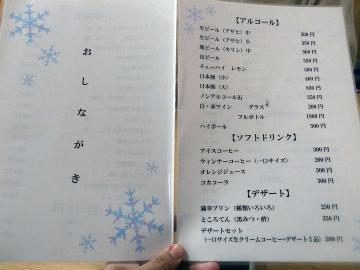 おしながき
【アルコール】
生ビール（アサヒ）中 500円
生ビール（アサヒ）小 350円
瓶ビール（キリン）中 500円
缶ビール 350円
チューハイ レモン 500円
日本酒（小） 400円
日本酒（大） 850円
ノンアルコール缶 350円
白・赤ワイン グラス 200円
フルボトル 1900円
ハイボール 300円
【ソフトドリンク】
アイスコーヒー 300円
ウィンナーコーヒー（一口サイズ） 200円
オレンジジュース 300円
コカコーラ 300円
【デザート】
プリン（種類いろいろ） 350円
ところてん（黒みつ・酢） 250円
デザートセット
（一口サイズ生クリームコーヒー+デザート1品） 500円